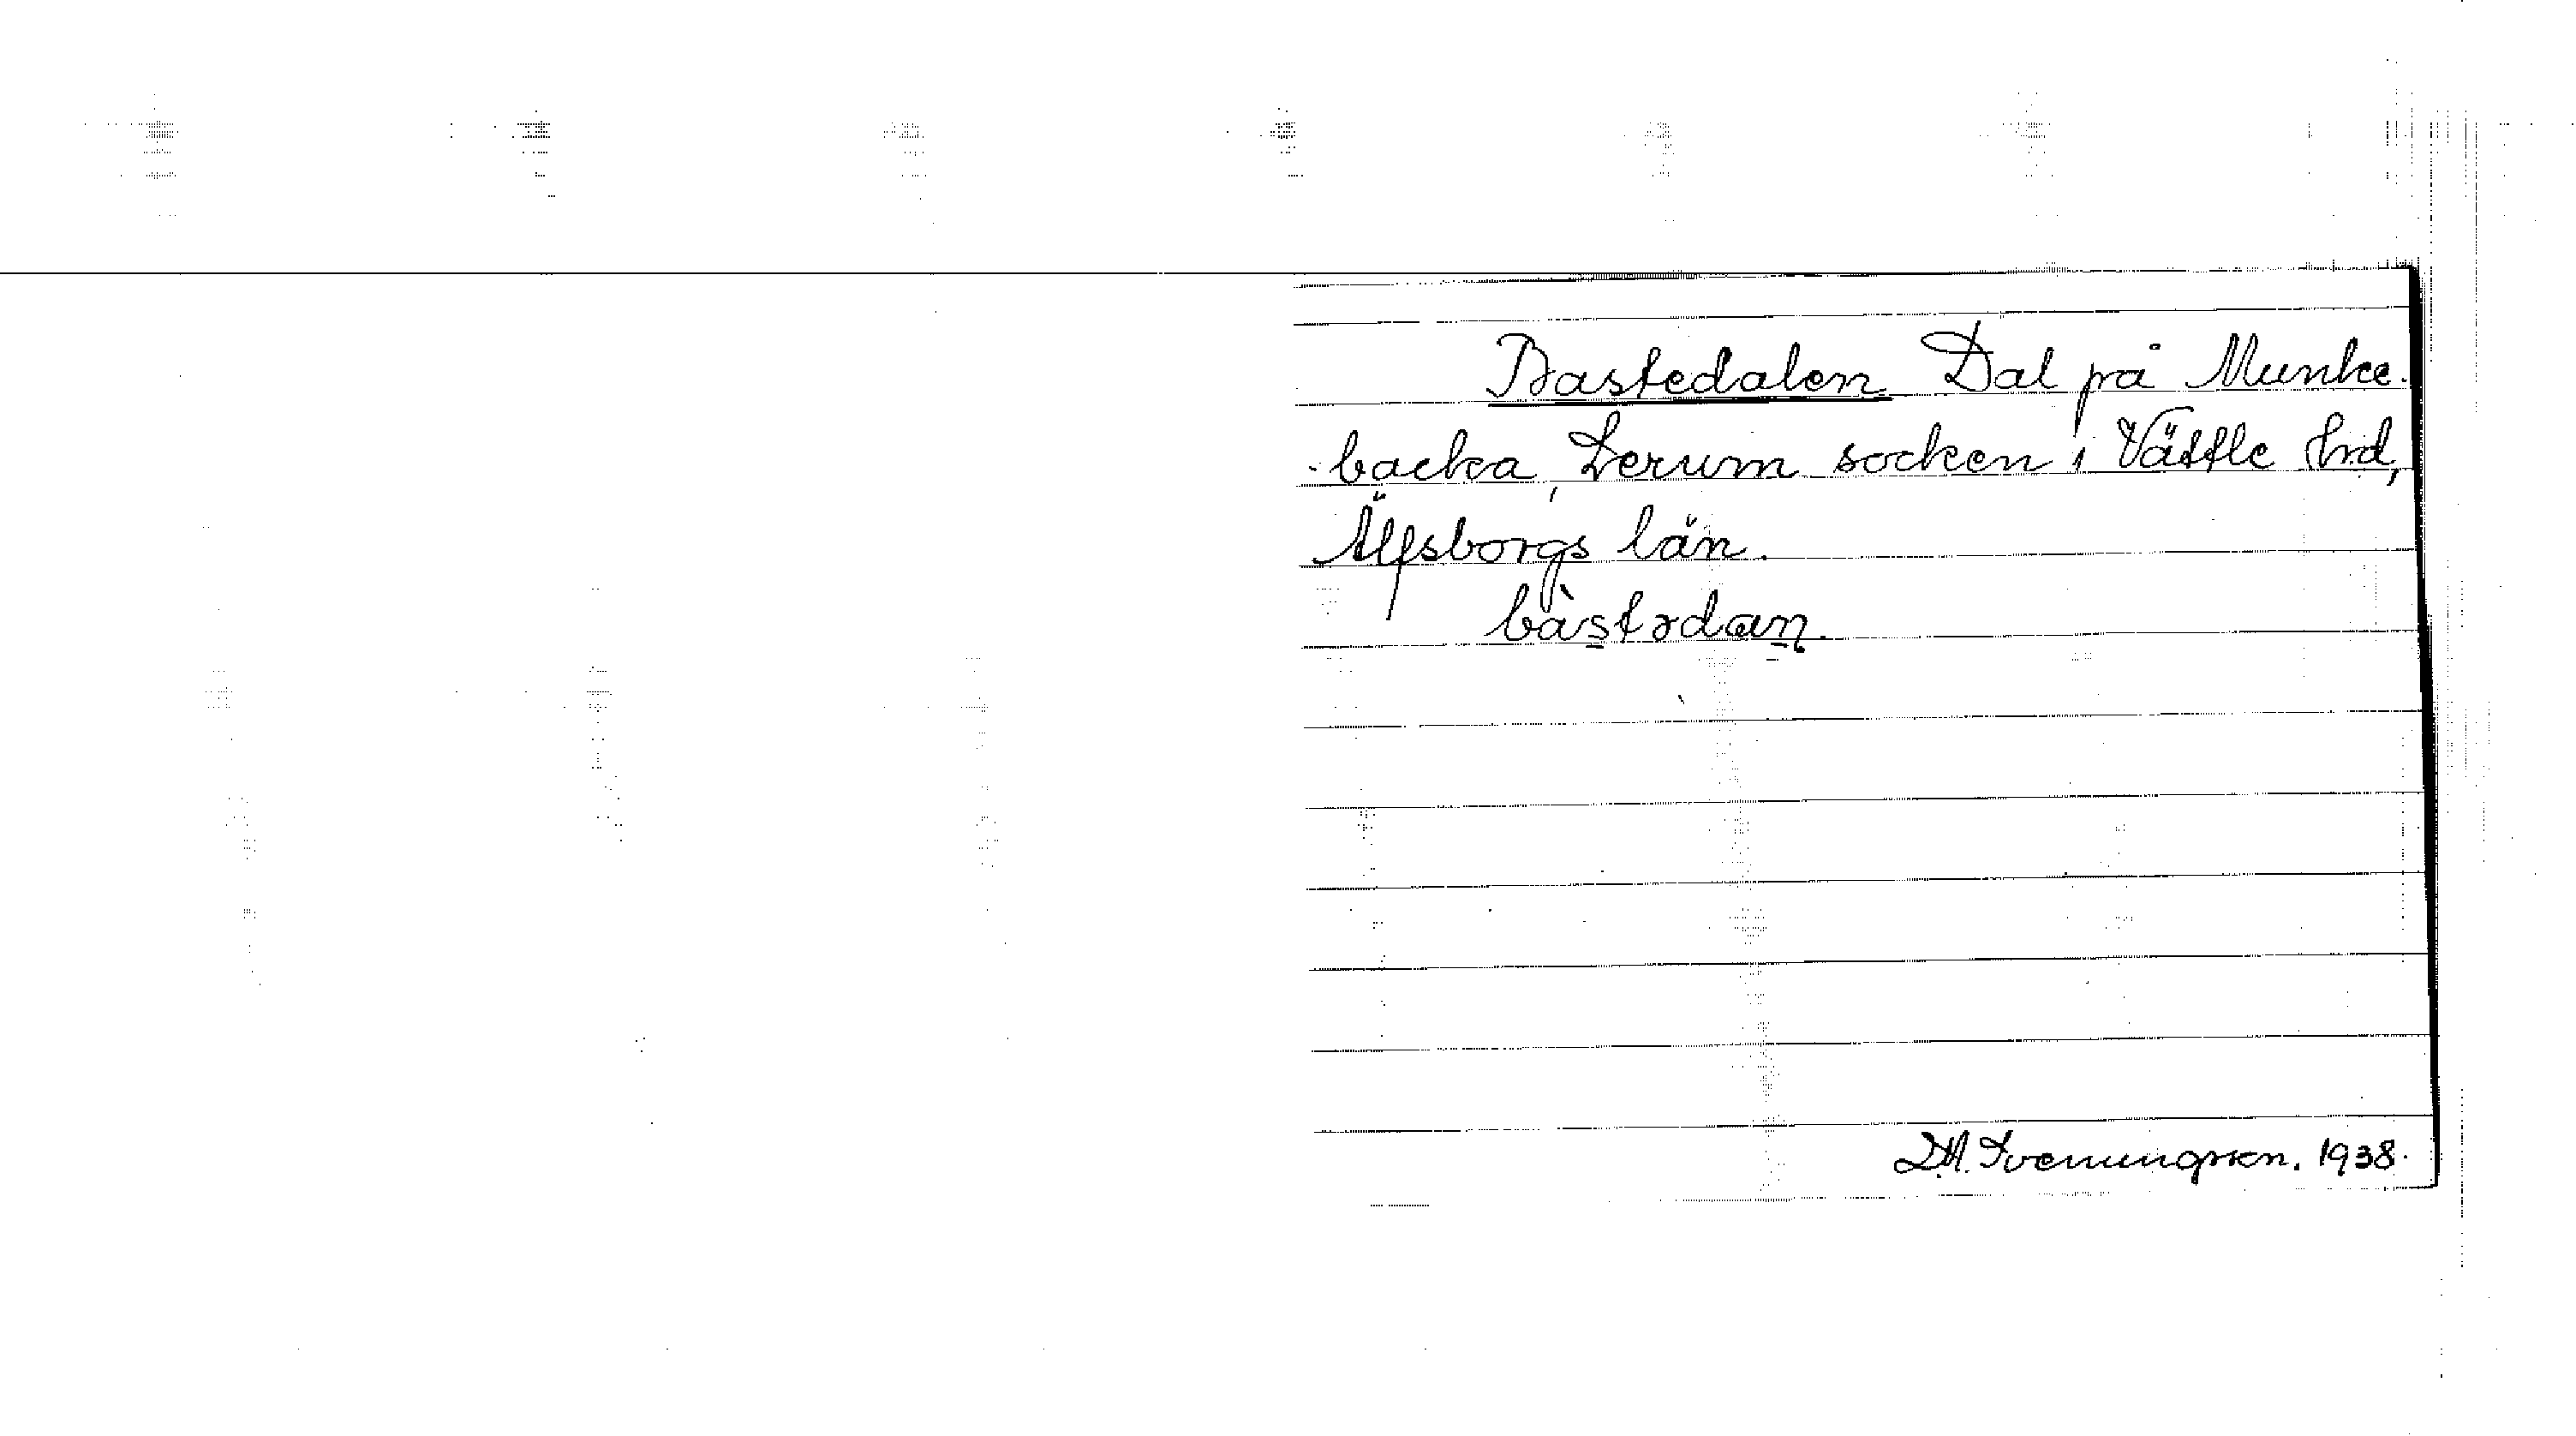 Bastedalen Dal på Munke-
backa, Lerum socken i Vättle Hrd,
Älfsborgs län.
bàstədαn.
D.A. Svenungsson. 1938.